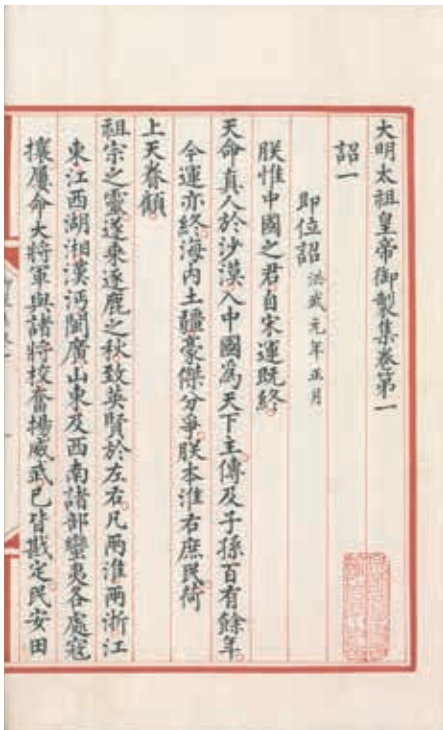 大明太祖皇帝御製集卷第一
詔一
即位詔洪武元年正月
朕惟中國之君自宋運既終
天命真人於沙漠入中國為天下主傳及子孫百有餘年
今運亦終海内土疆豪傑分爭朕本淮右庶民荷
上天眷顧
祖宗之靈遂乘逐鹿之秋致英賢於左右凡兩淮兩浙江
東江西湖湘漢沔閩廣山東及西南諸部蠻夷各處寇
攘屢命大將軍與諸將校奮揚威武已皆戡定民安田